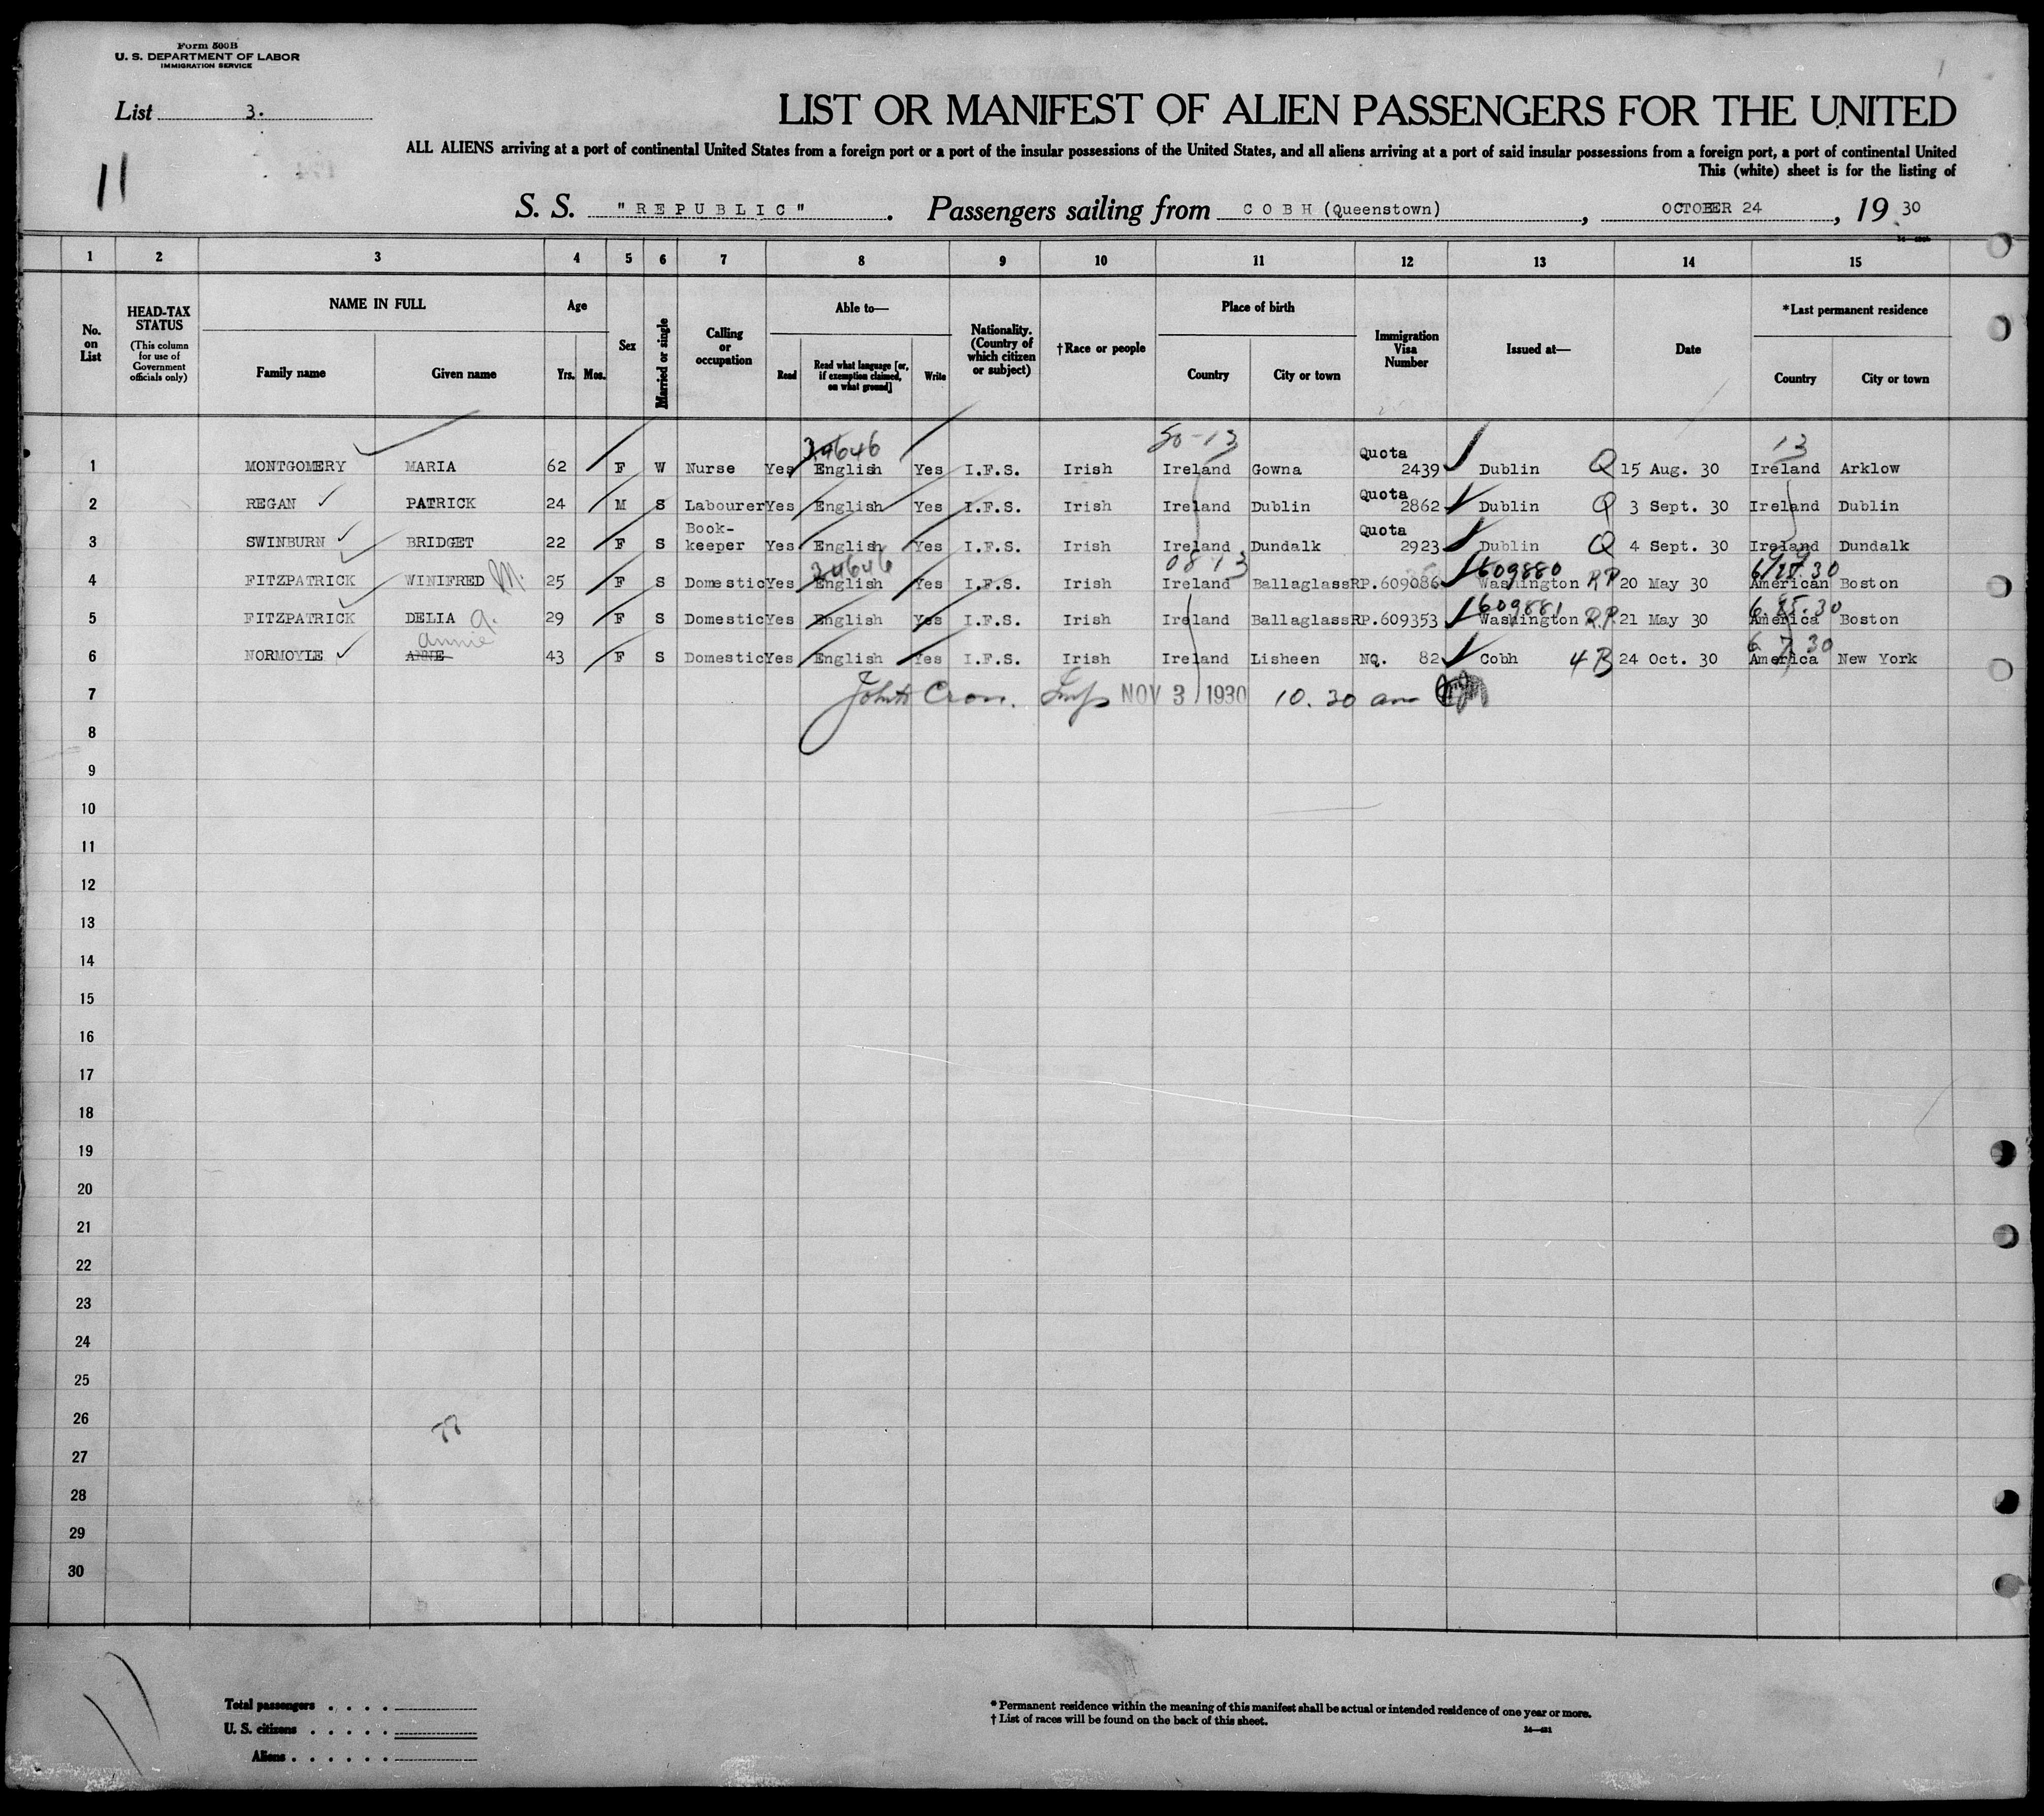 Form 500B
U. S. DEPARTMENT OF LABOR
IMMIGRATION SERVICE
List 3.
11
LIST OR MANIFEST OF ALIEN PASSENGERS FOR THE UNITED
ALL ALIENS arriving at a port of continental United States from a foreign port or a port of the insular possessions of the United States, and all aliens arriving at a port of said insular possessions from a foreign port, a port of continental United
This (white) sheet is for the listing of
S. S. "REPUBLIC". Passengers sailing from COBH (Queenstown), OCTOBER 24, 1930
1 2 3 4 5 6 7 8 9 10 11 12 13 14 15
No. on List
HEAD-TAX STATUS
(This column for use of Government officials only)
NAME IN FULL
Family name Given name
Age
Yrs. Mos.
Sex
Married or single
Calling or occupation
Able to—
Read
Read what language [or, if exemption claimed, on what ground]
Write
Nationality. (Country of which citizen or subject)
†Race or people
Place of birth
Country City or town
Immigration Visa Number
Issued at—
Date
*Last permanent residence
Country City or town
34646 50-13 13
1 MONTGOMERY MARIA 62 F W Nurse Yes English Yes I.F.S. Irish Ireland Gowna Quota 2439 Dublin Q 15 Aug. 30 Ireland Arklow
2 REGAN PATRICK 24 M S Labourer Yes English Yes I.F.S. Irish Ireland Dublin Quota 2862 Dublin Q 3 Sept. 30 Ireland Dublin
3 SWINBURN BRIDGET 22 F S Book-keeper Yes English Yes I.F.S. Irish Ireland Dundalk Quota 2923 Dublin Q 4 Sept. 30 Ireland Dundalk
34646 08 13 609880
4 FITZPATRICK WINIFRED M. 25 F S Domestic Yes English Yes I.F.S. Irish Ireland Ballaglass RP.609086 Washington RP 20 May 30 American Boston
609881
5 FITZPATRICK DELIA a. 29 F S Domestic Yes English Yes I.F.S. Irish Ireland Ballaglass RP.609353 Washington R.P. 21 May 30 America Boston
Annie
6 NORMOYLE ANNE 43 F S Domestic Yes English Yes I.F.S. Irish Ireland Lisheen NQ. 82 Cobh 4 B 24 Oct. 30 America New York
7 Cron. Insp NOV 3 1930 10.30 am
8
9
10
11
12
13
14
15
16
17
18
19
20
21
22
23
24
25
26
27
28
29
30
Total passengers
U. S. citizens
Aliens
*Permanent residence within the meaning of this manifest shall be actual or intended residence of one year or more.
†List of races will be found on the back of this sheet.